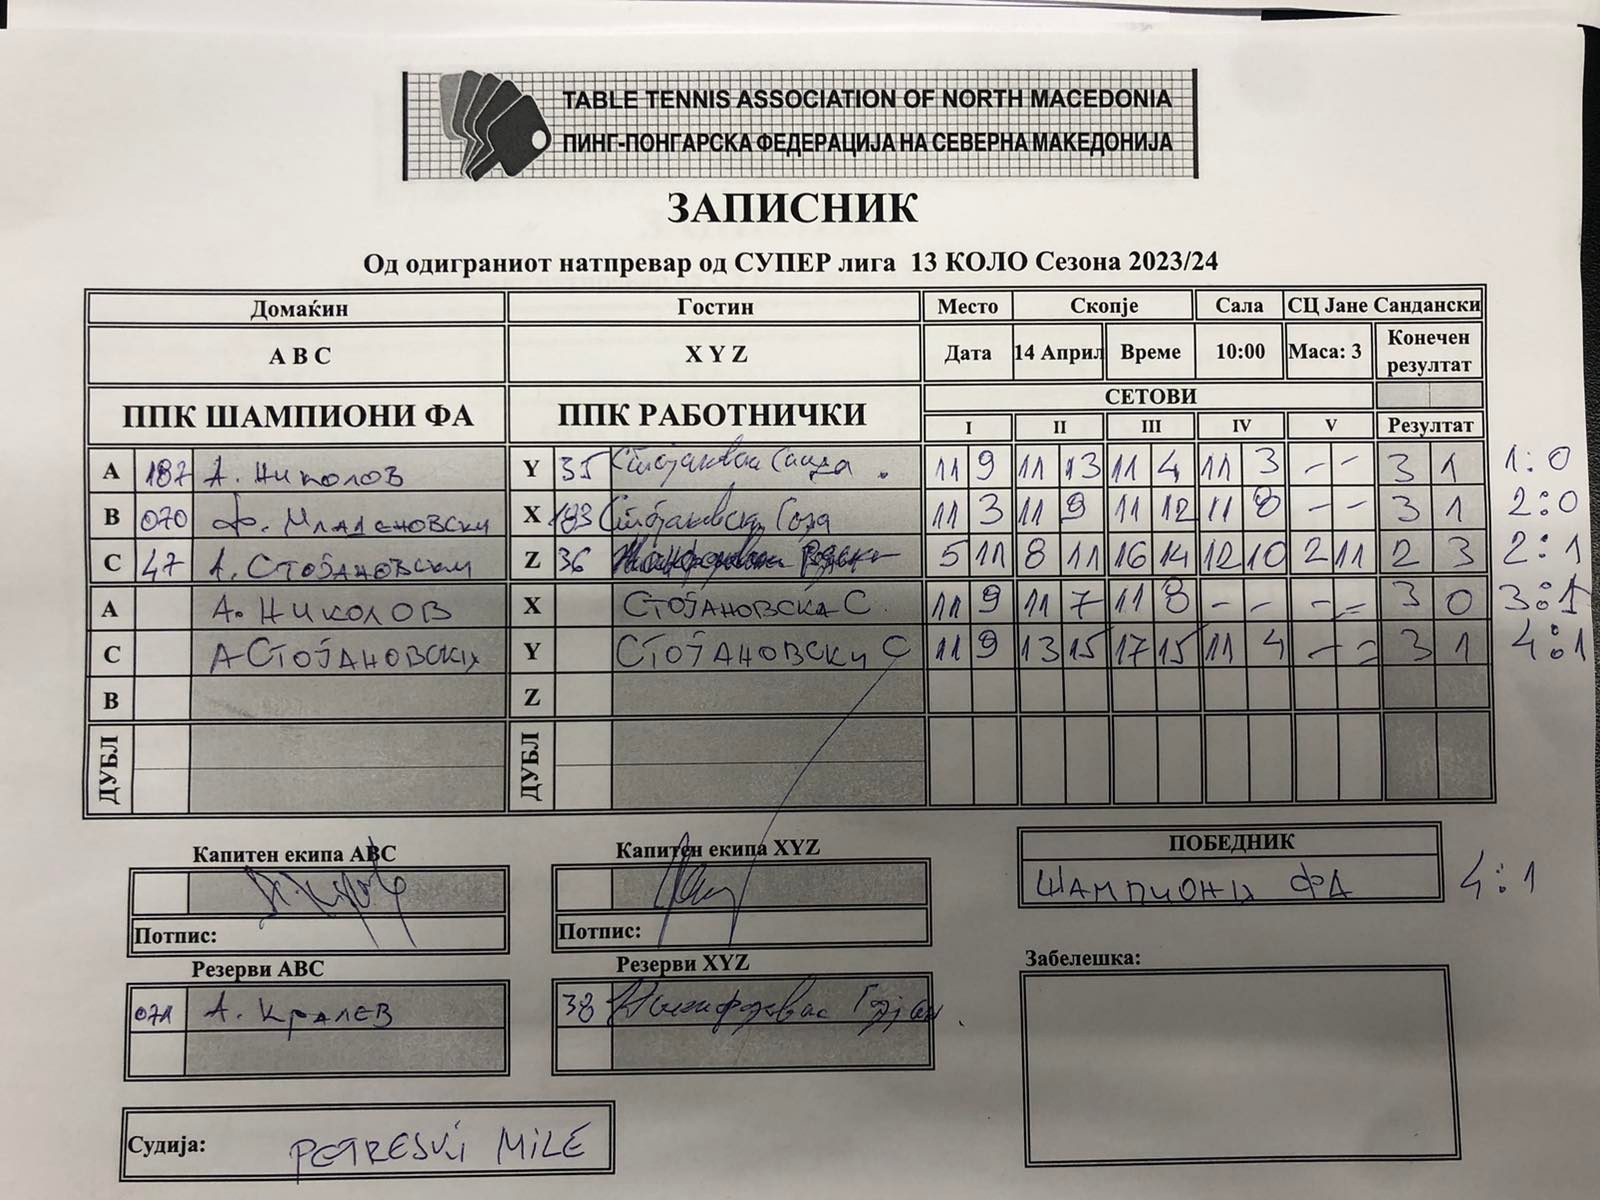 TABLE TENNIS ASSOCIATION OF NORTH MACEDONIA
ПИНГ-ПОНГАРСКА ФЕДЕРАЦИЈА НА СЕВЕРНА МАКЕДОНИЈА
ЗАПИСНИК
Од одиграниот натпревар од СУПЕР лига 13 КОЛО Сезона 2023/24
Домаќин Гостин Место Скопје Сала СЦ Јане Сандански
A B C X Y Z Дата 14 Април Време 10:00 Маса: 3 Конечен резултат
ППК ШАМПИОНИ ФА ППК РАБОТНИЧКИ СЕТОВИ
I II III IV V Резултат
A 187 А. Николов Y 35 11 9 11 13 11 4 11 3 - - 3 1 1:0
B 070 Ф. Младеновски X 193 11 3 11 9 11 12 11 8 - - 3 1 2:0
C 47 А. Стојановски Z 36 5 11 8 11 16 14 12 10 2 11 2 3 2:1
A А. Николов X Стојановска С. 11 9 11 7 11 8 - - - - 3 0 3:1
C А Стојановски Y Стојановски С 11 9 13 15 17 15 11 4 - - 3 1 4:1
B Z
ДУБЛ ДУБЛ
Капитен екипа ABC Капитен екипа XYZ ПОБЕДНИК
Шампиони ФА 4:1
Потпис: Потпис:
Резерви ABC Резерви XYZ Забелешка:
071 А. Кралев 38
Судија: PETRESKI MILE